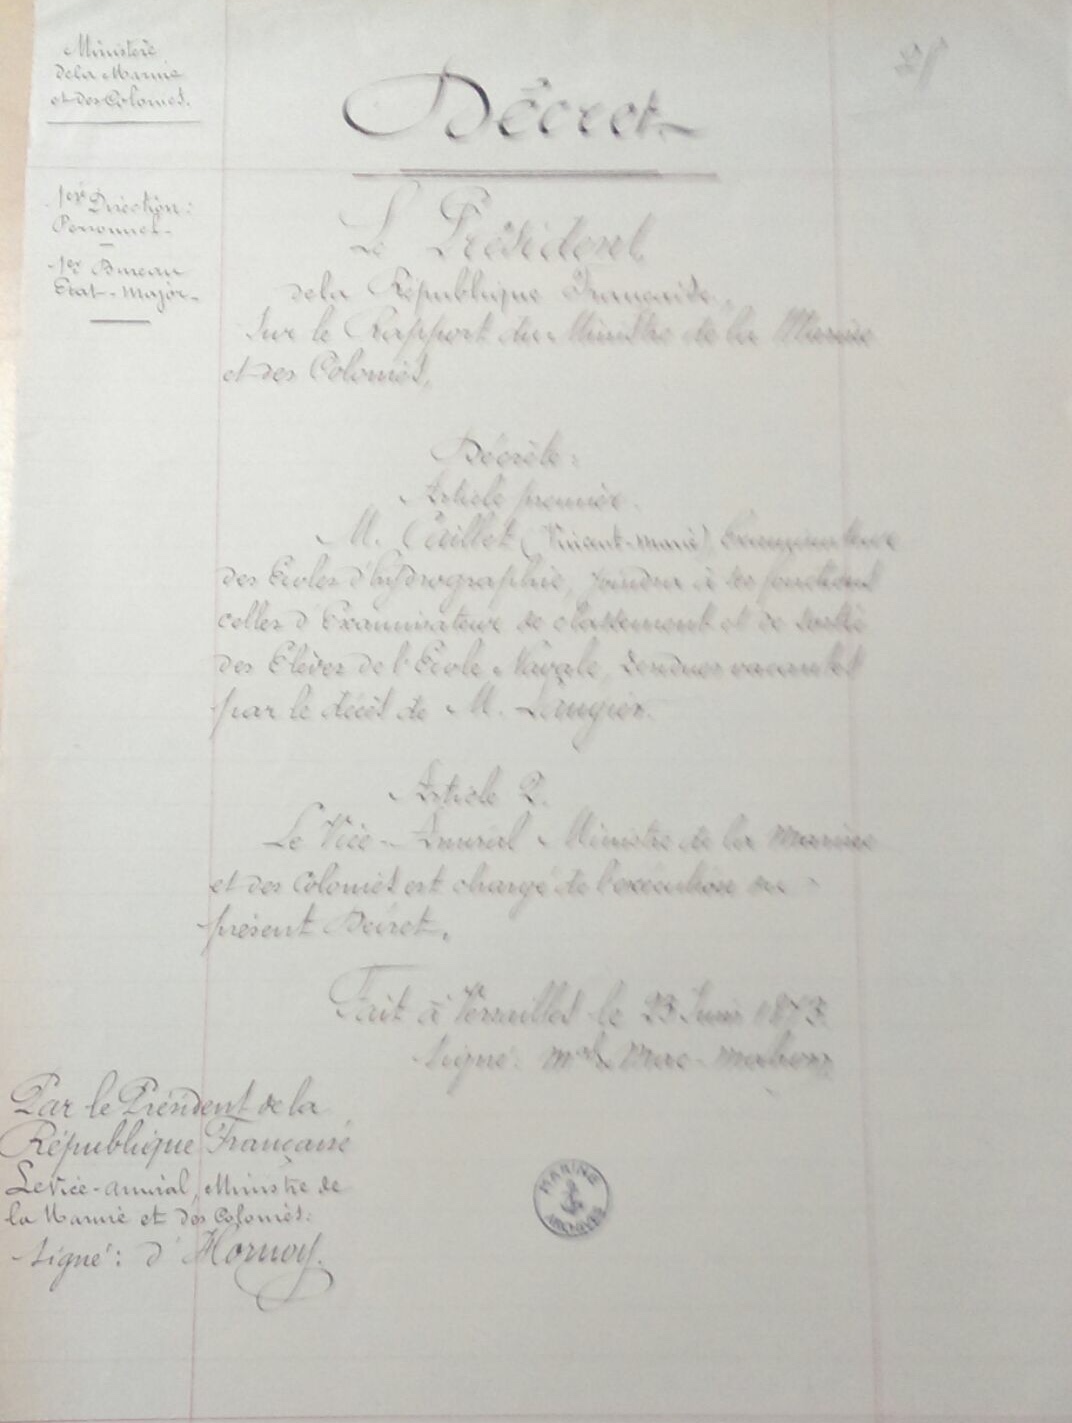 Ministère
de la Marine
et des Colonies.
Décret
1ère Direction:
Personnel-
1er Bureau
Etat-Major-
Le Président
de la République Française,
Sur le Rapport du Ministre de la Marine
et des Colonies,
Décrète:
Article premier.
M. Caillet (Vincent-Marie), Examinateur
des Ecoles d'hydrographie, joindra à ses fonctions
celles d'Examinateur de classement et de sortie
des Elèves de l'Ecole Navale, vacantes
par le décès de M. Laugier.
Article 2.
Le Vice-Amiral Ministre de la Marine
et des Colonies est chargé de l'exécution du
présent Décret.
Fait à Versailles le 23 Juin 1873.
Signé: Mal Mac-Mahon
Par le Président de la
République Française
Le Vice-amiral, Ministre de
la Marine et des Colonies:
Signé: d'Hornoy.
MARINE
ARCHIVES